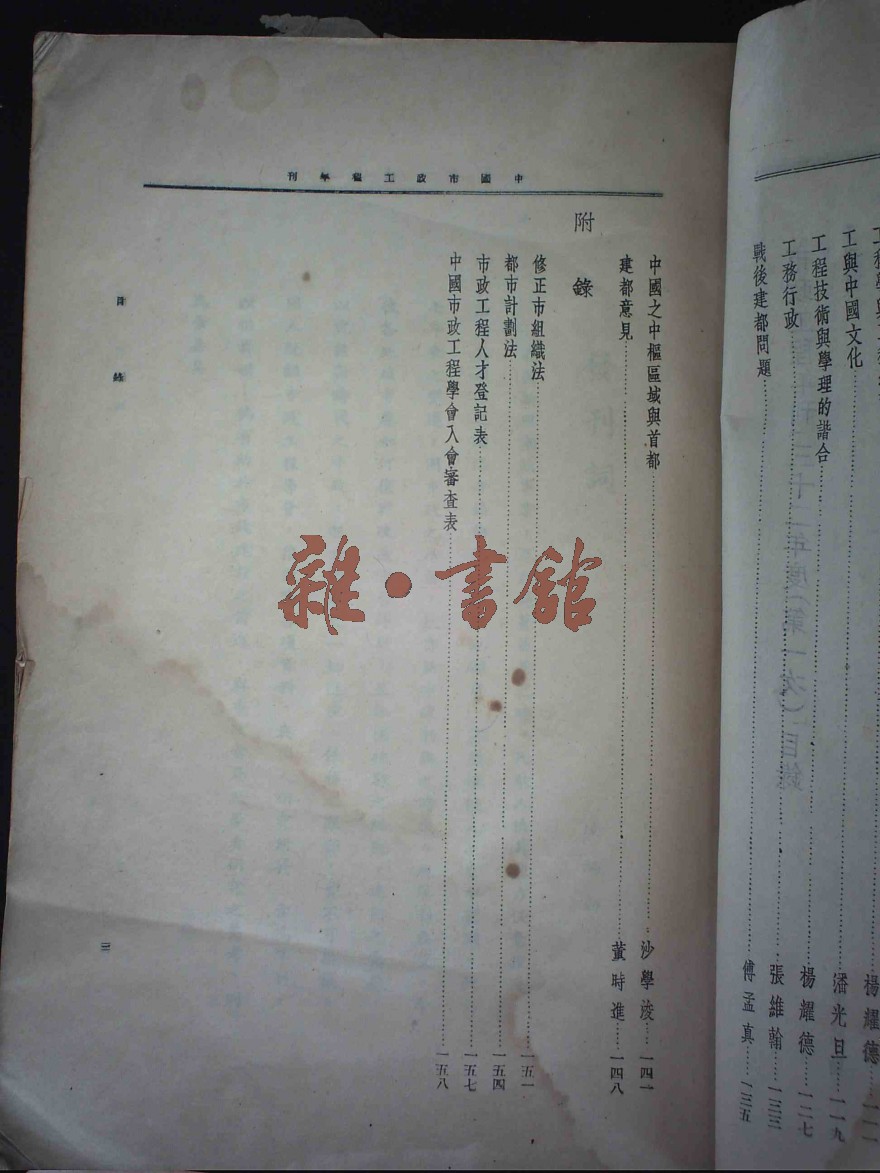 工與中國文化……潘光旦……一一九
工程技術與學理的諧合……楊耀德……一二七
工務行政……張維翰……一三三
戰後建都問題……傅孟真……一三五
刊學程工政市國中
中國之中樞區域與首都……沙學浚……一四一
建都意見……董時進……一四八
附錄
修正市組織法……一五一
都市計劃法……一五四
市政工程人才登記表……一五七
中國市政工程學會入會審查表……一五八
目錄
三
雜·書館